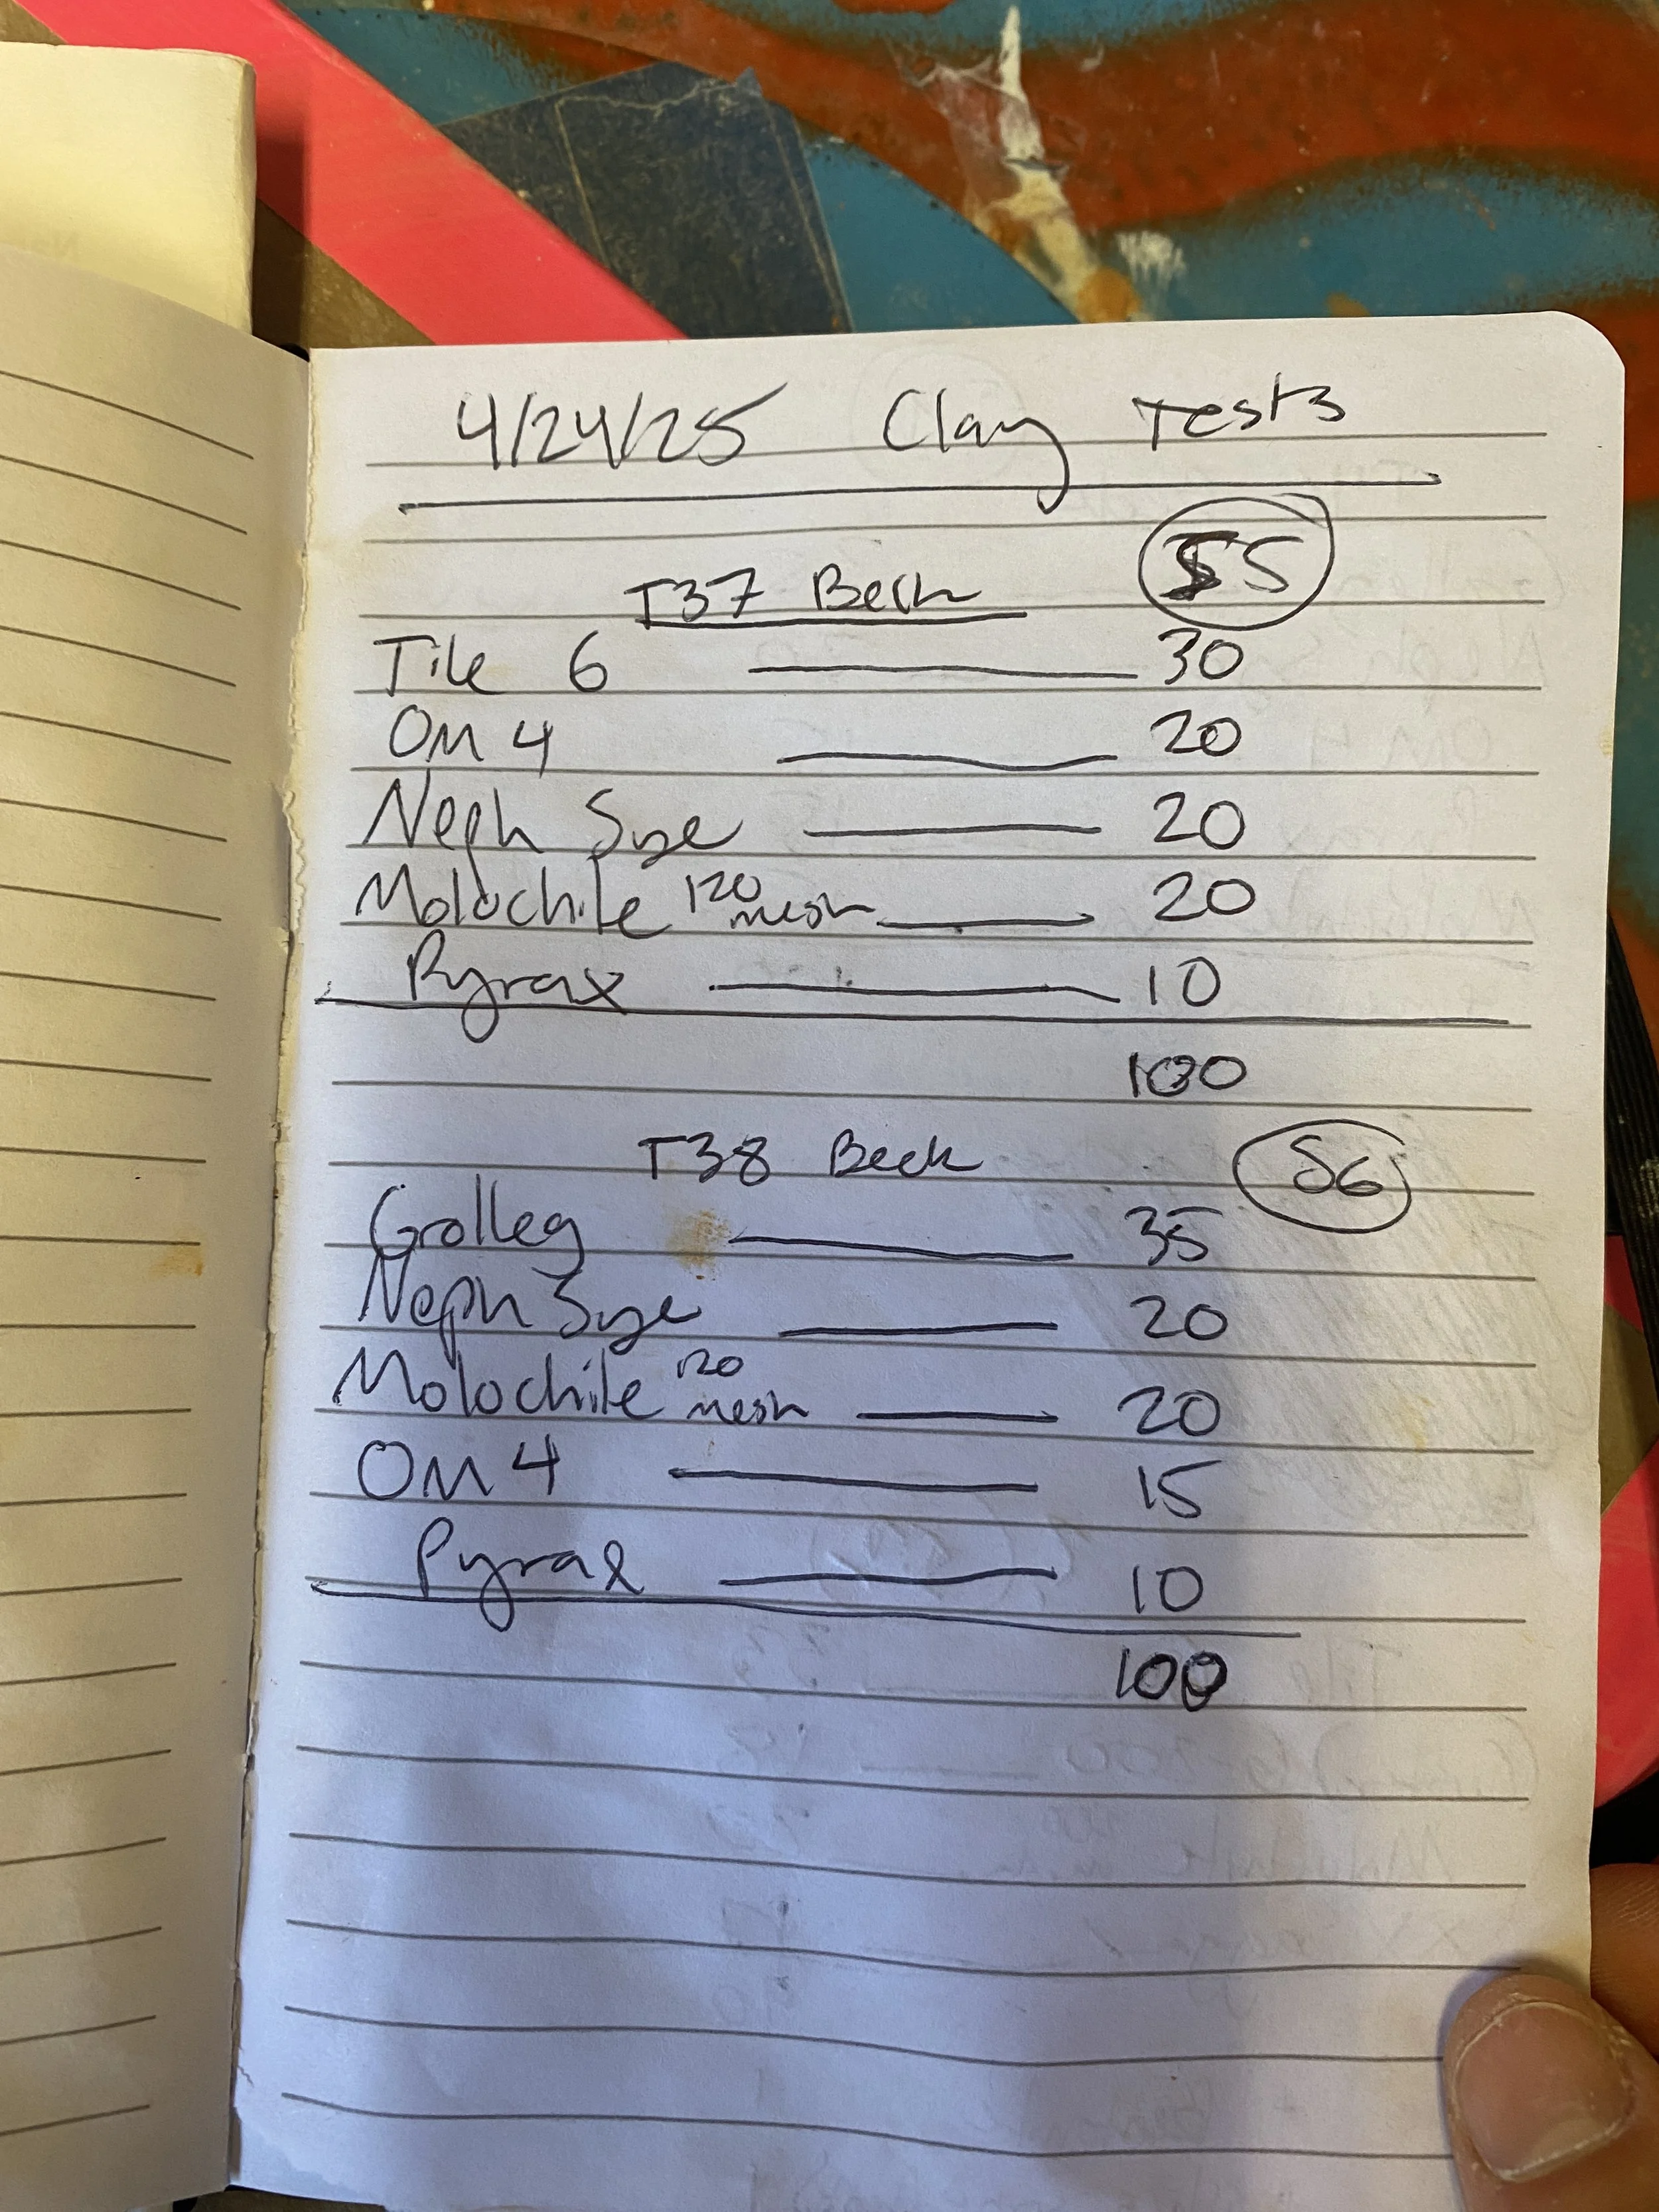 4/24/25 Clay Tests
T37 Beck 55
Tile 6 30
OM 4 20
Neph Sye 20
Molochite 120 mesh 20
Pyrax 10
100
T38 Beck 56
Grolleg 35
Neph Sye 20
Molochite 120 mesh 20
OM 4 15
Pyrax 10
100